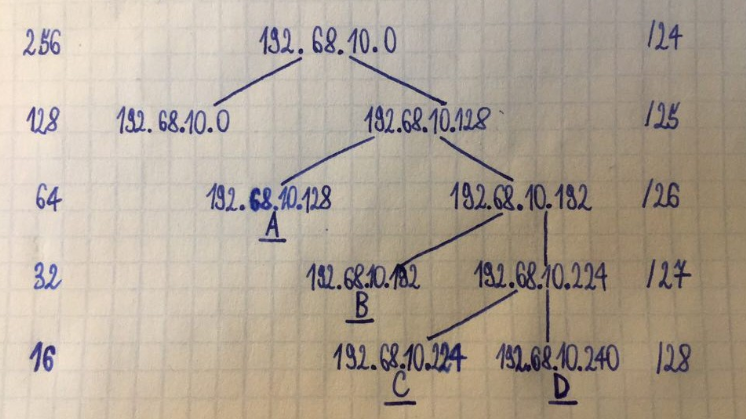 256 192.68.10.0 /24
128 192.68.10.0 192.68.10.128 /25
64 192.68.10.128 192.68.10.192 /26
A
32 192.68.10.192 192.68.10.224 /27
B
16 192.68.10.224 192.68.10.240 /28
C D